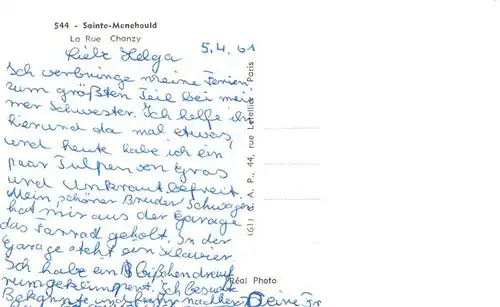 544 - Sainte-Menehould
La Rue Chanzy
5.4.61
Liebe Helga
Ich verbringe meine Ferien
zum größten Teil bei mei
ner Schwester. Ich helfe ihr
hier und da mal etwas,
und heute habe ich ein
paar Tulpen von Gras
und Unkraut befreit.
Mein schöner Bruder Schwager
hat mir aus der Garage
das Fahrrad geholt. In der
Garage steht ein Klavier.
Ich habe ein bißchen drauf
rumgeklimpert. Ich besuche
Bekannte und nachher
Deine
(61) C. A. P., 44, rue Letellier, Paris
Réal Photo